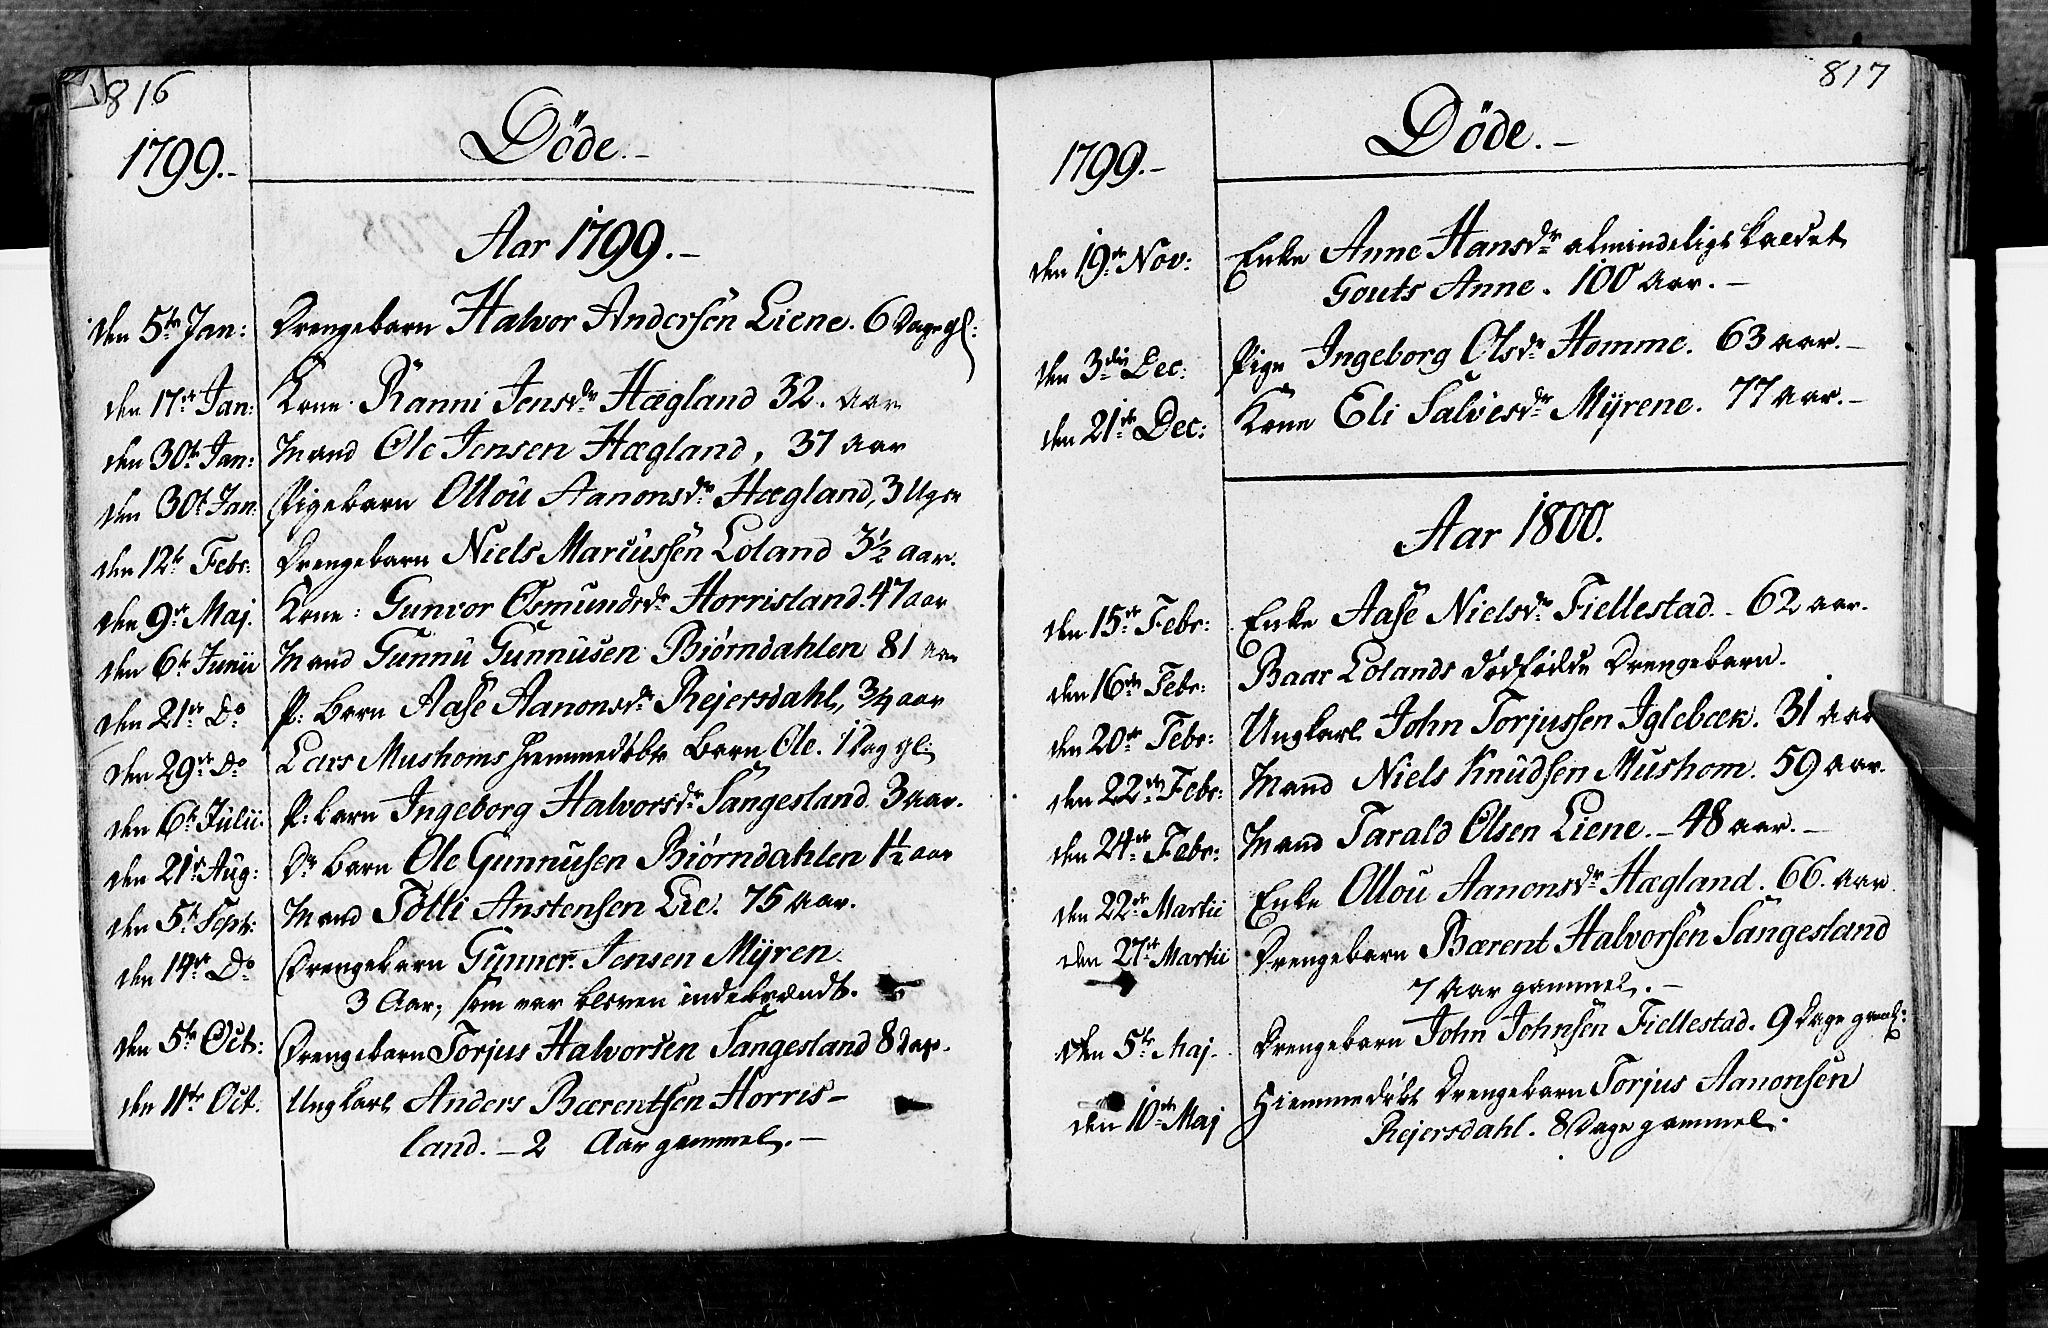 816
1799.-
Döde.-
Aar 1799.-
den 5te Jan: Drengebarn Halvor Andersen Liene. 6 Dage gl:
den 17de Jan: Kone Ranni Jensdr Hægland 32. aar
den 30te Jan: Mand Ole Jensen Hægland, 37 aar
den 30te Jan. Pigebarn Ollou Aanonsdr Hægland, 3 Uger
den 12te Febr: Drengebarn Niels Marcussen Loland 3½ aar.
den 9de Maj. Kone: Gunvor Osmundsdr Horrisland. 47 aar
den 6te Junii Mand Gunnu Gunnusen Biørndahlen 81 aar
den 21de Do P: Barn Aase Aanonsdr Rejersdahl, 3/4 aar
den 29de Do Lars Mushoms hiemmedøbt Barn Ole. 1 Dag gl:
den 6te Julii. P: barn Ingeborg Halvorsdr Sangesland. 3 aar.
den 21de Aug: Dr barn Ole Gunnusen Biørndahlen 1½ aar
den 5te Sept: Mand Tolli Anstensen Lie. 75 aar.
den 14de Do Drengebarn Gunner Jensen Mÿren.
3 Aar, som var bleven indebrændt.
den 5te Oct: Drengebarn Torjus Halvorsen Sangesland 8 Dage.
den 11te Oct. Ungkarl Anders Bærentsen Horris-
land. - 2 Aar gammel. -
817
1799.-
Döde.-
den 19de Nov: Enke Anne Hansdr almindeligst kaldet
Gouts Anne. 100 Aar. -
den 3die Dec: Pige Ingeborg Olsdr Homme. 63 aar. -
den 21de Dec: Kone Eli Salvesdr Mÿrene. 77 aar. -
Aar 1800.
den 15de Febr: Enke Aase Nielsdr Fiellestad. - 62 aar.
den 16de Febr: Baar Lolands dödfödde Drengebarn.
den 20de Febr: Ungkarl John Torjussen Iglebæk. 31 aar
den 22de Febr: Mand Niels Knudsen Mushom. 59 aar.
den 24de Febr: Mand Tarald Olsen Liene. - 48 aar. -
den 22de Martii Enke Ollou Aanonsdr Hægland. 66. aar
den 27de Martii Drengebarn Bærent Halvorsen Sangesland
7 Aar gammel. -
den 5te Maj. Drengebarn John Johnsen Fiellestad. 9 Dage gml:
den 10de Maj Hiemmedøbt Drengebarn Torjus Aanonsen
Rejersdahl. 8 Dage gammel.